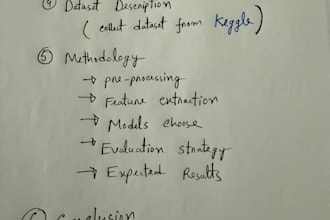 ④ Dataset Description
( collect dataset from Keggle)
⑤ Methodology
→ pre-processing
→ Feature extraction
→ Models choose
→ Evaluation strategy
→ Expected Results
⑥ Conclusion